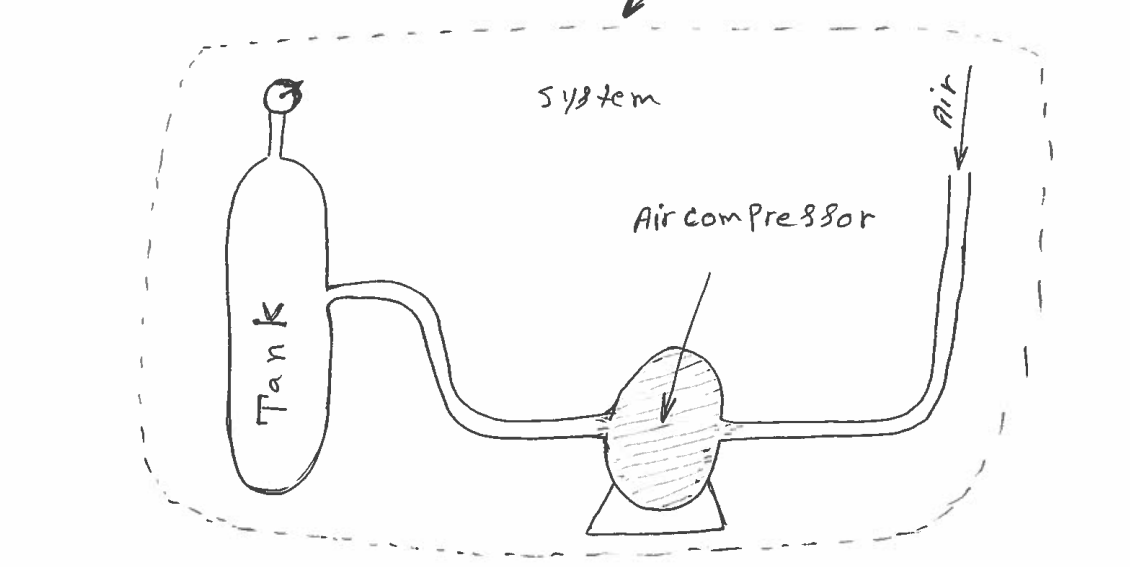 System
Air
Air compressor
Tank